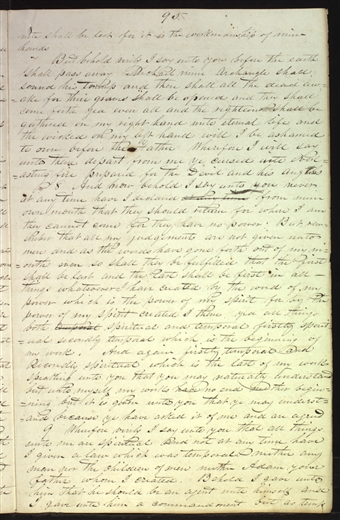 95
mote shall be lost for it is the workmanship of mine
hands
But behold verily I say unto you before the earth
shall pass away Michael mine Archangle shall
sound his trumph and then shall all the dead awa-
ke for their graves shall be opened and they shall
come forth yea even all and the righteous shall be
gathered on my right hand unto eternal life and
the wicked on my left hand will I be ashamed
to own before the Father Wherefore I will say
unto them depart from me ye cursed into everl-
asting fire prepared for the Devil and his Angles
8 And now behold I say unto you never
at any time have I declared from mine
own mouth that they should return for where I am
they cannot come for they have no power But rem-
ember that all my judgements are not given unto
men and as the words have gone forth out of my m-
outh even so shall they be fulfilled that the first
shall be last and the last shall be first in all
things whatsoever I have created by the word of my
power which is the power of my spirit for by the
power of my Spirit created I them yea all things
both spiritual and temporal firstly spirit-
ual secondly temporal which is the beginning of
my work And again firstly temporal and
secondly spiritual which is the last of my work
Speaking unto you that you may naturally understand
but unto myself my works have no end neither begin-
ning but it is given unto you that ye may underst-
and because ye have asked it of me and are agreed
9 Wherefore verily I say unto you that all things
unto me are spiritual and not at any time have
I given a law which was temporal neither any
man nor the children of men neither Adam your
father whom I created Behold I gave unto
him that he should be an agent unto himself and
I gave unto him a commandment but no temp